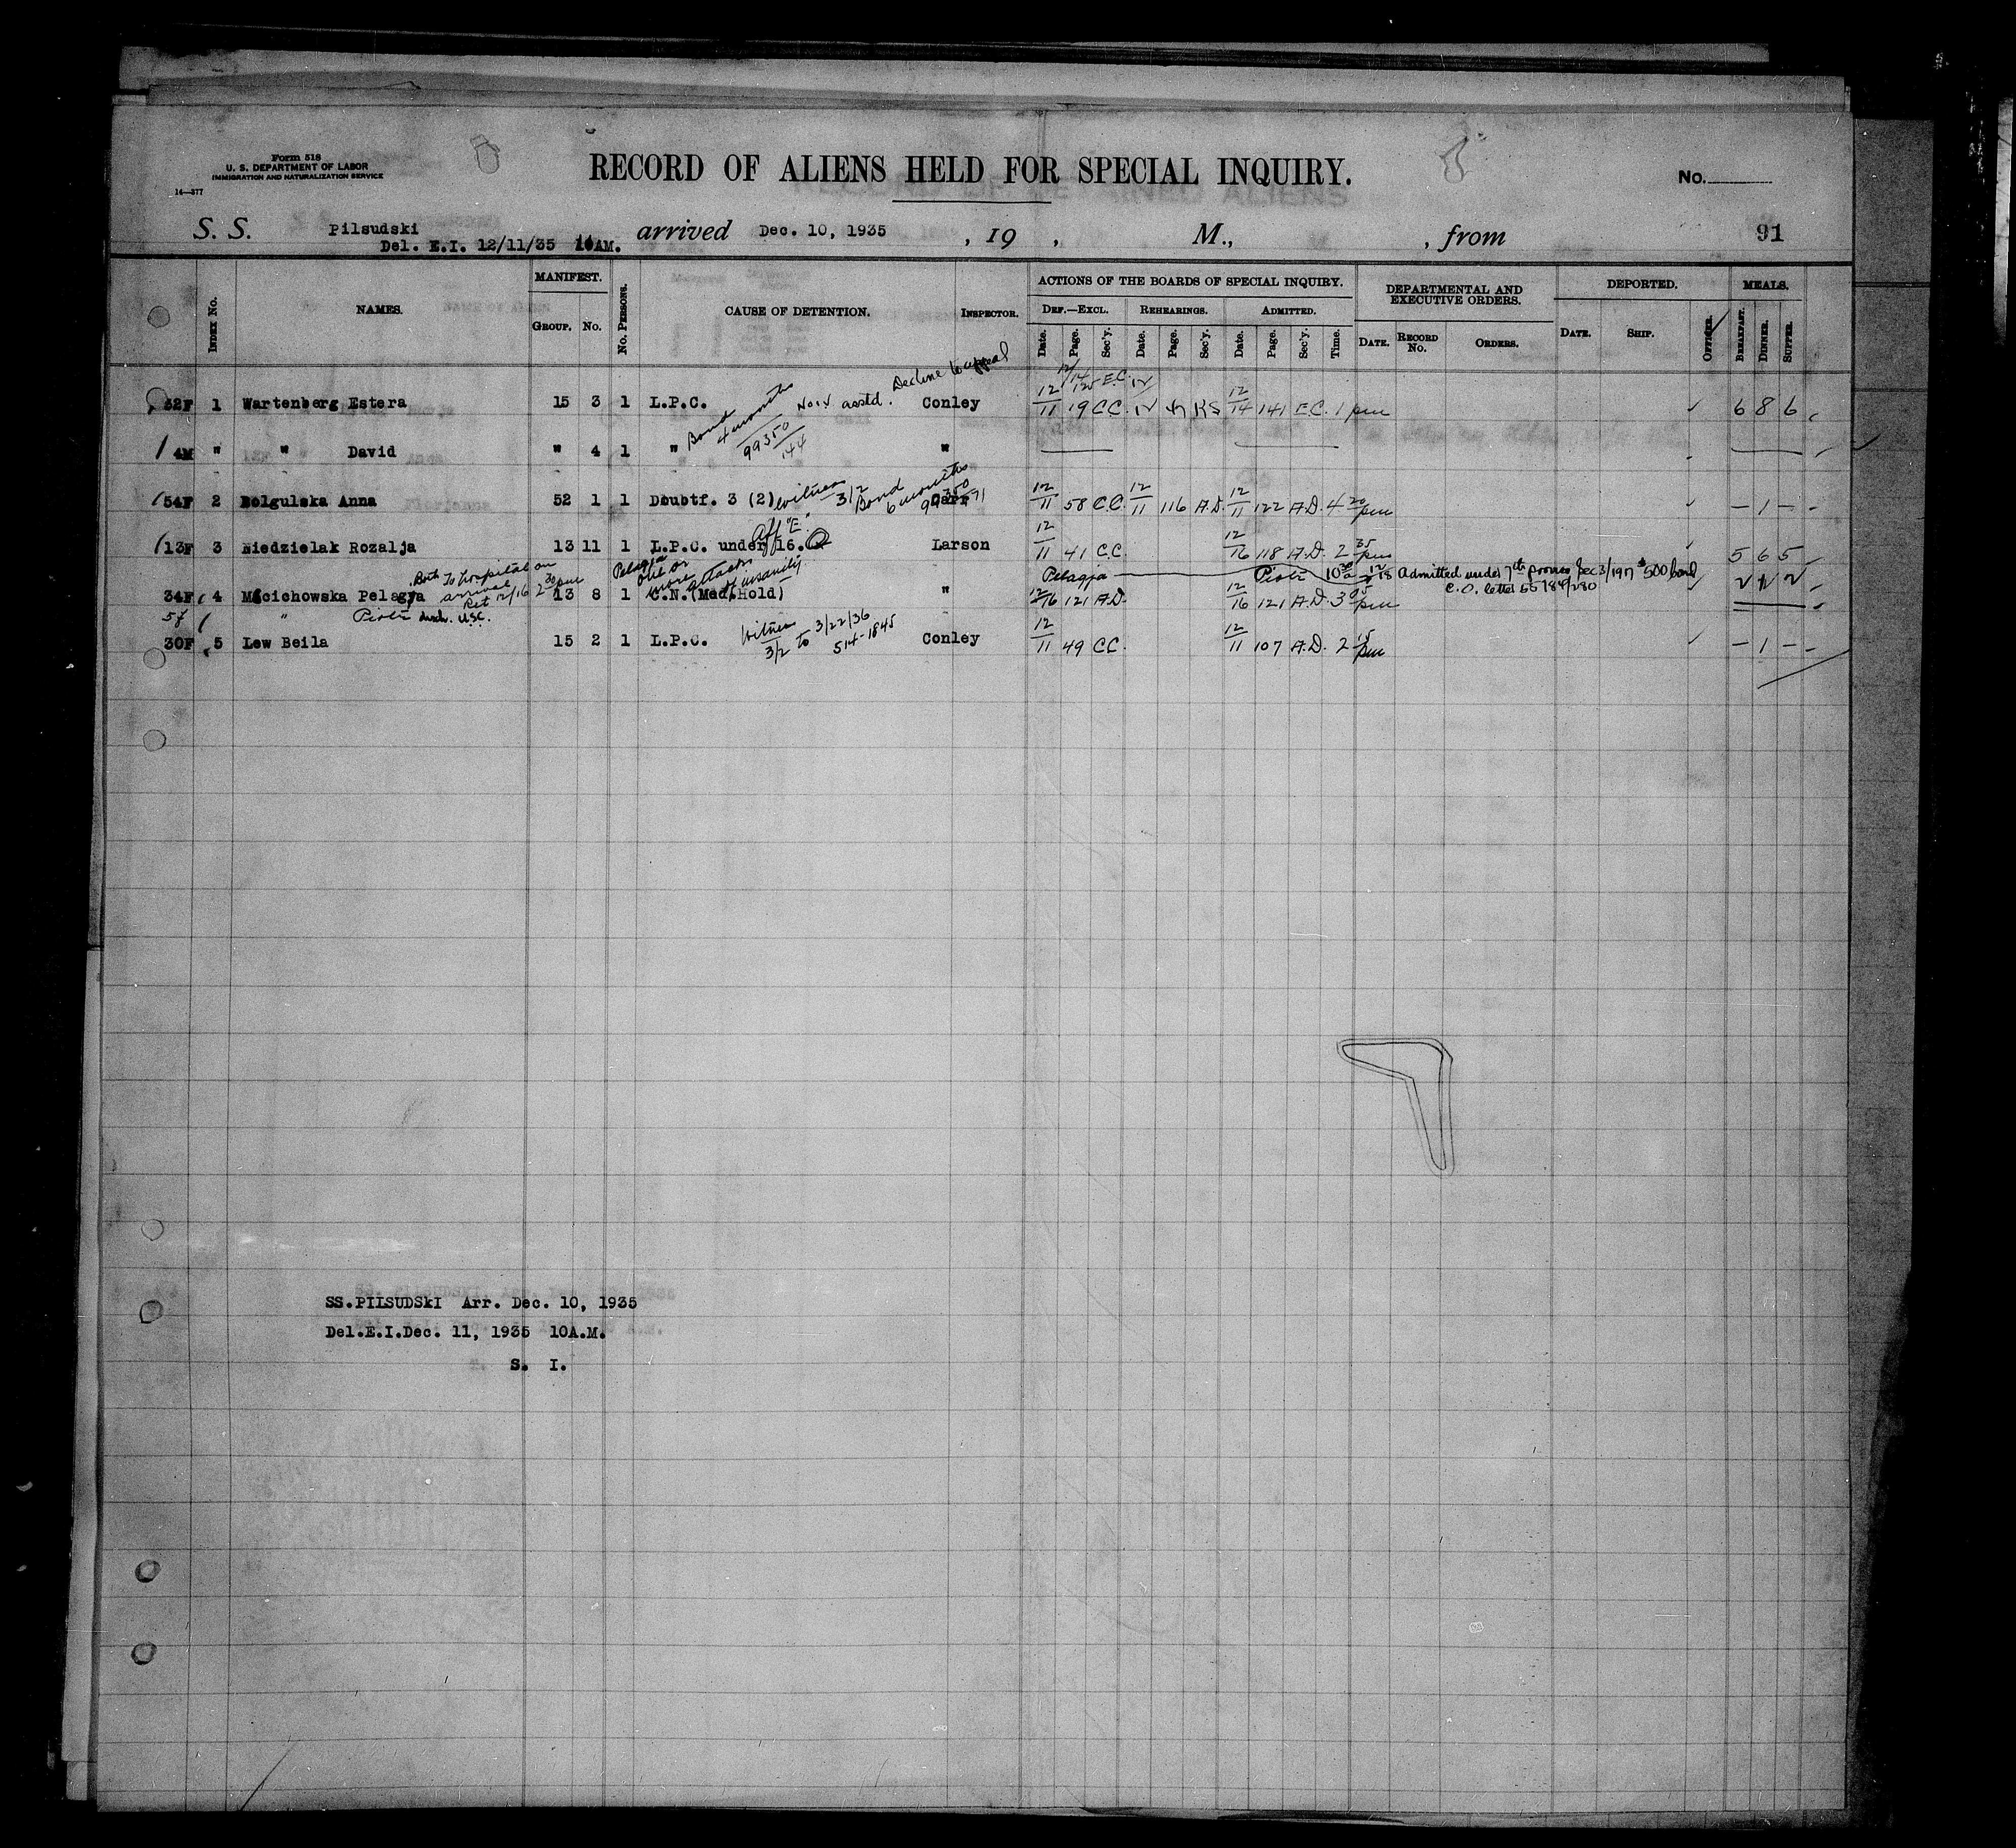 Form 518
U. S. DEPARTMENT OF LABOR
IMMIGRATION AND NATURALIZATION SERVICE
14—377
RECORD OF ALIENS HELD FOR SPECIAL INQUIRY.
No.
S. S. Pilsudski arrived Dec. 10, 1935 , 19 , M., , from 91
Del. E.I. 12/11/35 10AM.
Index No. NAMES. MANIFEST. Group. No. No. Persons. CAUSE OF DETENTION. Inspector. ACTIONS OF THE BOARDS OF SPECIAL INQUIRY. Def.—Excl. Date. Page. Sec'y. Rehearings. Date. Page. Sec'y. Admitted. Date. Page. Sec'y. Time. DEPARTMENTAL AND EXECUTIVE ORDERS. Date. Record No. Orders. DEPORTED. Date. Ship. Officer. MEALS. Breakfast. Dinner. Supper.
Decline to appeal
12/14 125 E.C.
32F 1 Wartenberg Estera 15 3 1 L.P.C. Conley 12/11 19 C.C. 12/14 141 E.C. 1 pm 6 8 6
Bond 4 months 99350/144
4M " " David " 4 1 " "
54F 2 Bolgulska Anna 52 1 1 Doubtf. 3 (2) witness 3/2 Bond 6 months Carr 12/11 58 C.C. 12/11 116 A.D. 12/11 122 A.D. 4 20 pm – 1 –
Aff "E"
13F 3 Niedzielak Rozalja 13 11 1 L.P.C. under 16. Larson 12/11 41 C.C. 12/16 118 A.D. 2 35 pm 5 6 5
Both To Hospital on arrival Ret 12/16 2 30 pm
Pelagja one or more attacks of insanity
Pelagja Piotr 10 30 a 12/18 Admitted under 7th proviso Sec 3/1917 $500 bond
C.O. letter 55789/280
34F 4 Mscichowska Pelagja 13 8 1 C.N. (Med. Hold) " 12/16 121 A.D. 12/16 121 A.D. 3 05 pm
" Piotr disch. U.S.C.
30F 5 Lew Beila 15 2 1 L.P.C. Witness 3/2 to 3/22/36 514-1845 Conley 12/11 49 C.C. 12/11 107 A.D. 2 15 pm – 1 –
SS.PILSUDSKI Arr. Dec. 10, 1935
Del.E.I.Dec. 11, 1935 10A.M.
S. I.